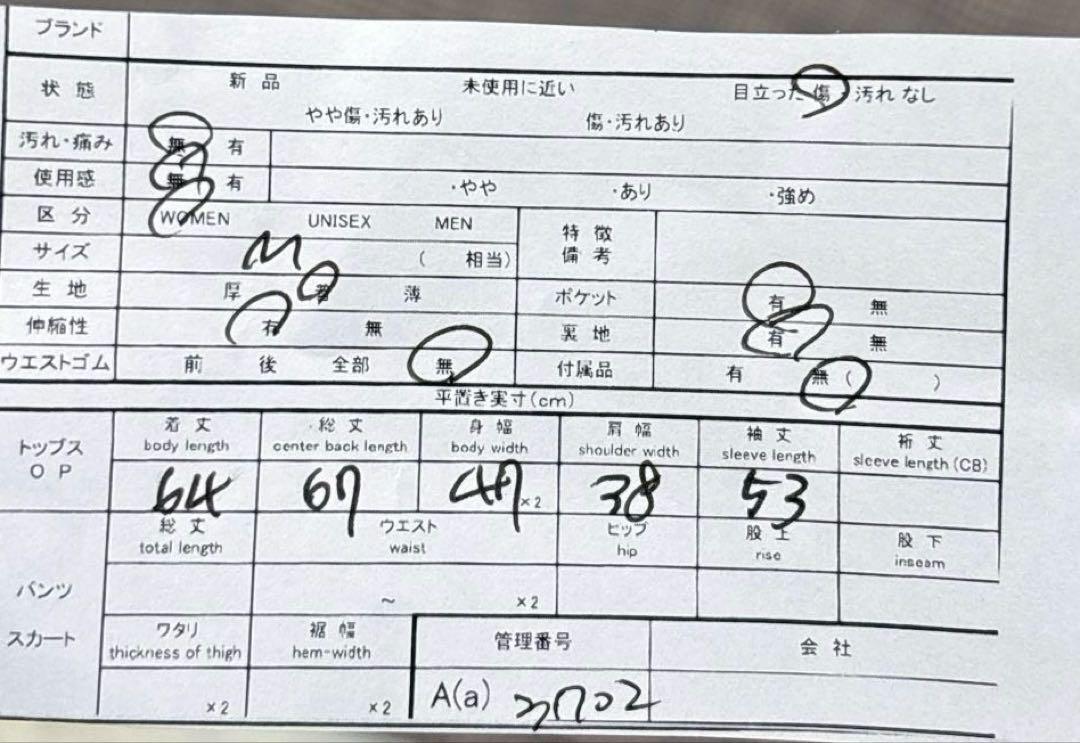 ブランド
状態 新品 未使用に近い 目立った傷 汚れなし
やや傷・汚れあり 傷・汚れあり
汚れ・痛み 無 有
使用感 無 有 ・やや ・あり ・強め
区分 WOMEN UNISEX MEN 特徴
サイズ M ( 相当) 備考
生地 厚 普 薄 ポケット 有 無
伸縮性 有 無 裏地 有 無
ウエストゴム 前 後 全部 無 付属品 有 無 ( )
平置き実寸(cm)
トップス 着丈 総丈 身幅 肩幅 袖丈 裄丈
OP body length center back length body width shoulder width sleeve length sleeve length (CB)
64 67 47 ×2 38 53
総丈 ウエスト ヒップ 股上 股下
total length waist hip rise inseam
パンツ ~ ×2
スカート ワタリ 裾幅 管理番号 会社
thickness of thigh hem-width
×2 ×2 A(a) 3702